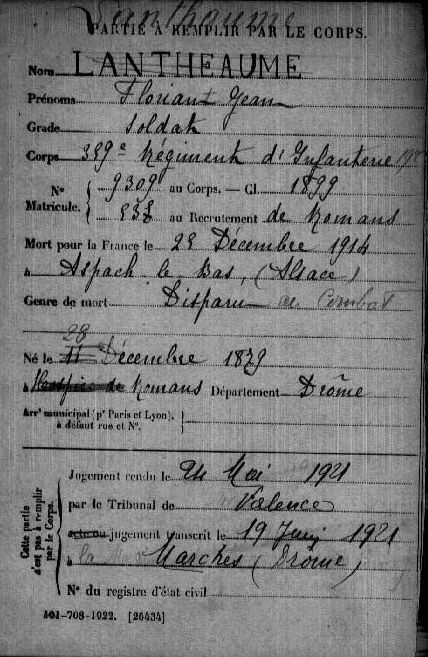 Lantheaume
PARTIE À REMPLIR PAR LE CORPS.
Nom LANTHEAUME
Prénoms Floriant Jean
Grade soldat
Corps 359e Régiment d'Infanterie
N° Matricule. 9309 au Corps. — Cl. 1899
838 au Recrutement de Romans
Mort pour la France le 28 Décembre 1914
à Aspach le Bas, (Alsace)
Genre de mort Disparu au Combat
28
Né le 11 Décembre 1879
à Hospice de Romans Département Drôme
Arrt municipal (pr Paris et Lyon),
à défaut rue et N°.
Cette partie n'est pas à remplir par le Corps.
Jugement rendu le 24 Mai 1921
par le Tribunal de Valence
acte ou jugement transcrit le 19 Juin 1921
à Marches (Drôme)
N° du registre d'état civil
101-708-1922. [26434]